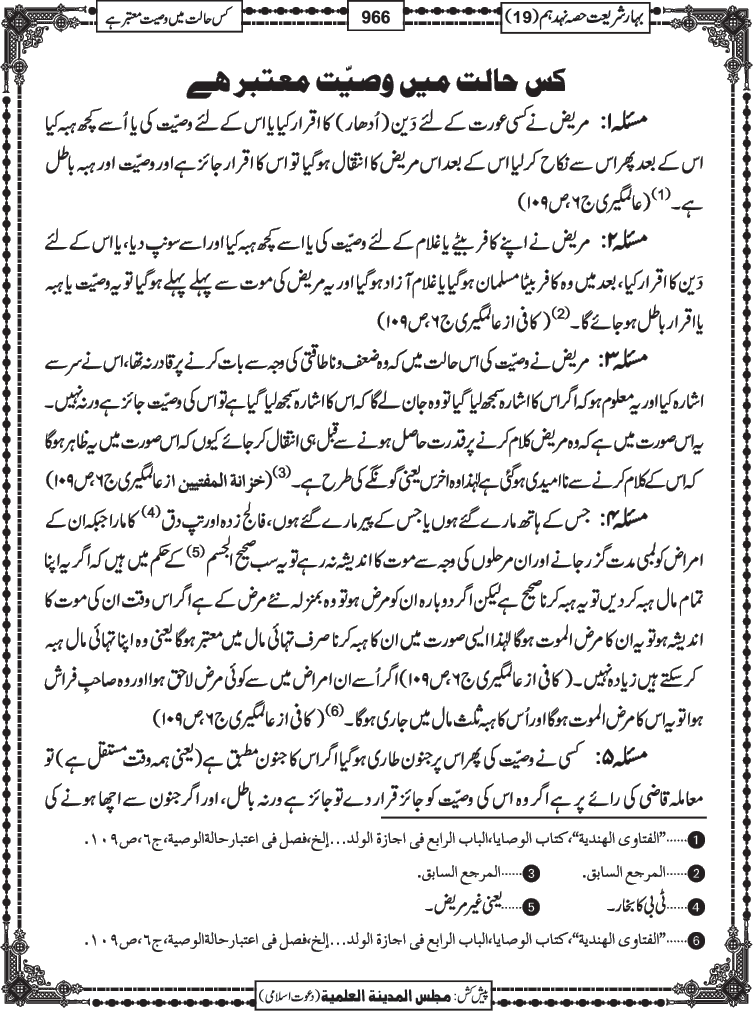 بہار شریعت حصہ نہدہم (19)
966
کس حالت میں وصیت معتبر ہے
کس حالت میں وصیّت معتبر ھے
مسئلہ ۱: مریض نے کسی عورت کے لئے دَین (اُدھار) کا اقرار کیا یا اس کے لئے وصیّت کی یا اُسے کچھ ہبہ کیا
اس کے بعد پھر اس سے نکاح کرلیا اس کے بعد اس مریض کا انتقال ہوگیا تو اس کا اقرار جائز ہے اور وصیّت اور ہبہ باطل
ہے۔(1) (عالمگیری ج۶، ص۱۰۹)
مسئلہ ۲: مریض نے اپنے کافر بیٹے یا غلام کے لئے وصیّت کی یا اسے کچھ ہبہ کیا اور اسے سونپ دیا، یا اس کے لئے
دَین کا اقرار کیا، بعد میں وہ کافر بیٹا مسلمان ہوگیا یا غلام آزاد ہوگیا اور یہ مریض کی موت سے پہلے پہلے ہوگیا تو یہ وصیّت یا ہبہ
یا اقرار باطل ہو جائے گا۔(2) (کافی از عالمگیری ج۶، ص۱۰۹)
مسئلہ ۳: مریض نے وصیّت کی اس حالت میں کہ وہ ضعف و ناطاقتی کی وجہ سے بات کرنے پر قادر نہ تھا، اس نے سر سے
اشارہ کیا اور یہ معلوم ہو کہ اگر اس کا اشارہ سمجھ لیا گیا تو وہ جان لے گا کہ اس کا اشارہ سمجھ لیا گیا ہے تو اس کی وصیّت جائز ہے ورنہ نہیں۔
یہ اس صورت میں ہے کہ وہ مریض کلام کرنے پر قدرت حاصل ہونے سے قبل ہی انتقال کر جائے کیوں کہ اس صورت میں یہ ظاہر ہوگا
کہ اس کے کلام کرنے سے ناامیدی ہوگئی ہے لہٰذا وہ اخرس یعنی گونگے کی طرح ہے۔(3) (خزانة المفتیین از عالمگیری ج۶، ص۱۰۹)
مسئلہ ۴: جس کے ہاتھ مارے گئے ہوں یا جس کے پیر مارے گئے ہوں، فالج زدہ اور تپ دق(4) کا مارا جبکہ ان کے
امراض کو لمبی مدت گزر جانے اور ان مرحلوں کی وجہ سے موت کا اندیشہ نہ رہے تو یہ سب صحیح الجسم(5) کے حکم میں ہیں کہ اگر یہ اپنا
تمام مال ہبہ کر دیں تو یہ ہبہ کرنا صحیح ہے لیکن اگر دوبارہ ان کو مرض ہو تو وہ بمنزلہ نئے مرض کے ہے اگر اس وقت ان کی موت کا
اندیشہ ہو تو یہ ان کا مرض الموت ہوگا لہٰذا ایسی صورت میں ان کا ہبہ کرنا صرف تہائی مال میں معتبر ہوگا یعنی وہ اپنا تہائی مال ہبہ
کر سکتے ہیں زیادہ نہیں۔ (کافی از عالمگیری ج۶، ص۱۰۹) اگر اُسے ان امراض میں سے کوئی مرض لاحق ہوا اور وہ صاحبِ فراش
ہوا تو یہ اس کا مرض الموت ہوگا اور اُس کا ہبہ ثلث مال میں جاری ہوگا۔(6) (کافی از عالمگیری ج۶، ص۱۰۹)
مسئلہ ۵: کسی نے وصیّت کی پھر اس پر جنون طاری ہوگیا اگر اس کا جنون مطبق ہے (یعنی ہمہ وقت مستقل ہے) تو
معاملہ قاضی کی رائے پر ہے اگر وہ اس کی وصیّت کو جائز قرار دے تو جائز ہے ورنہ باطل، اور اگر جنون سے اچھا ہونے کی
1 ......"الفتاوی الهندية"، کتاب الوصايا، الباب الرابع فی اجازة الولد...إلخ، فصل فی اعتبار حالة الوصية، ج٦، ص١٠٩.
2 ......المرجع السابق. 3 ......المرجع السابق.
4 ......ٹی بی کا بخار۔ 5 ......یعنی غیر مریض۔
6 ......"الفتاوی الهندية"، کتاب الوصايا، الباب الرابع فی اجازة الولد...إلخ، فصل فی اعتبار حالة الوصية، ج٦، ص١٠٩.
پیش کش: مجلس المدينة العلمية (دعوت اسلامی)